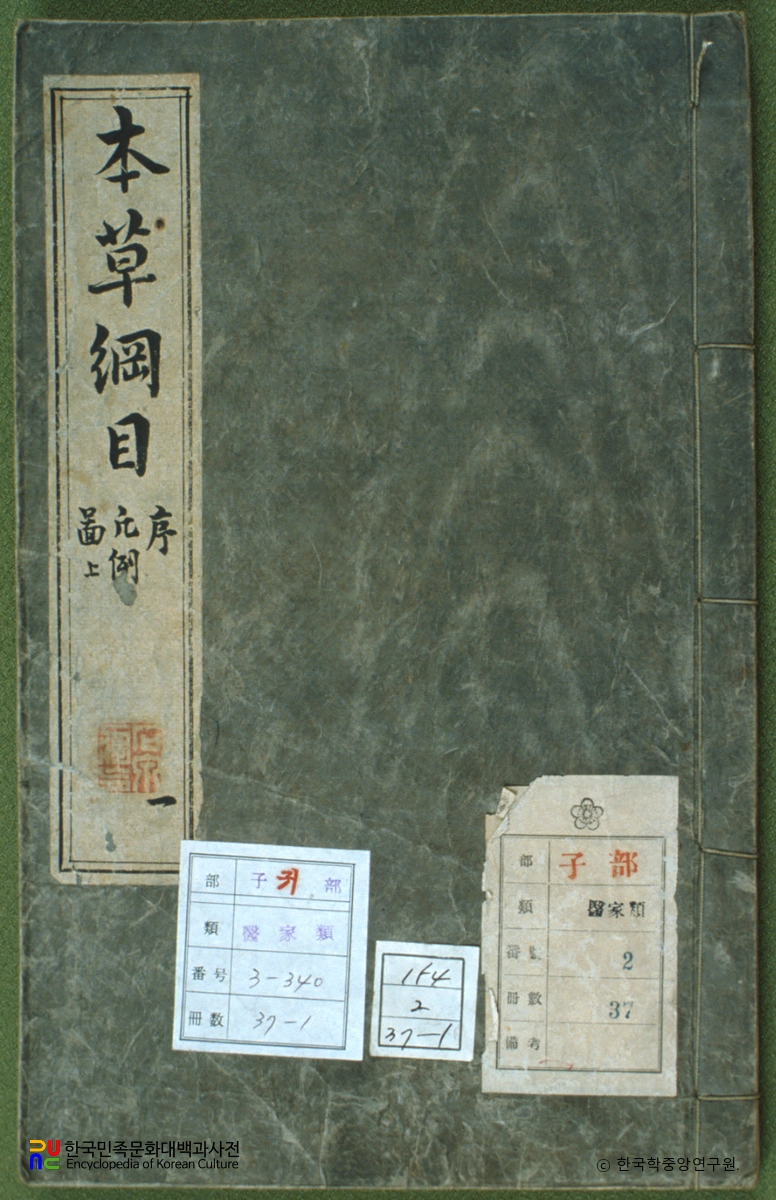 本草綱目
序
凡例
啚上
一
部 子 귀 部
類 醫家類
番号 3-340
冊数 37-1
154
2
37-1
部 子部
類 醫家類
番 2
冊數 37
備考
한국민족문화대백과사전
Encyclopedia of Korean Culture
© 한국학중앙연구원